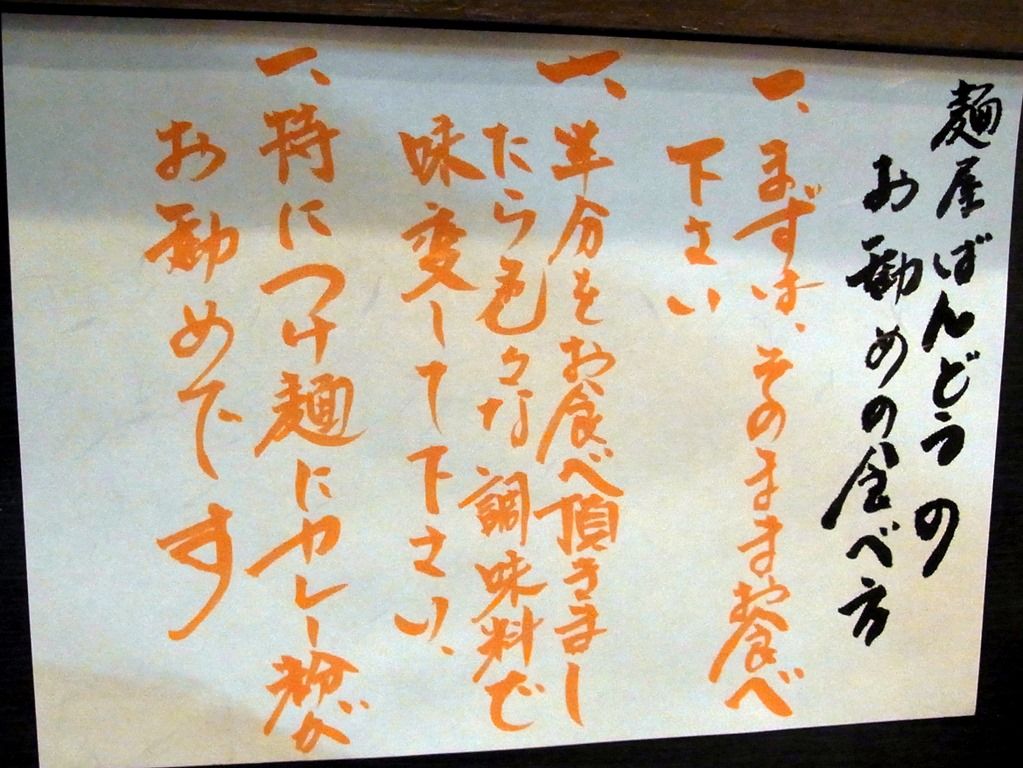 麺屋ばんどうの
お勧めの食べ方
一、まずは、そのままお食べ
下さい
一、半分をお食べ頂きまし
たら色々な調味料で
味変して下さい、
一、特につけ麺にカレー粉が
お勧めです